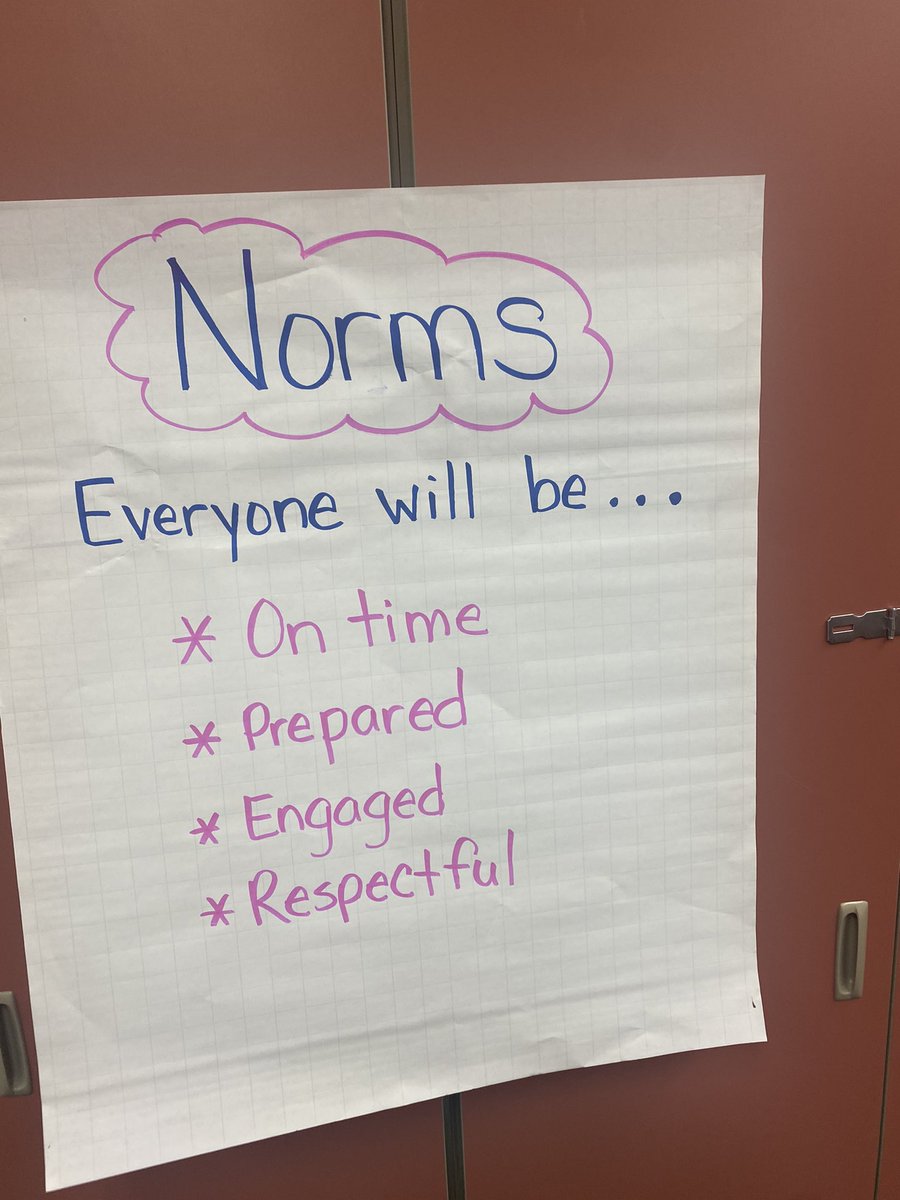 Norms
Everyone will be...
* On time
* Prepared
* Engaged
* Respectful